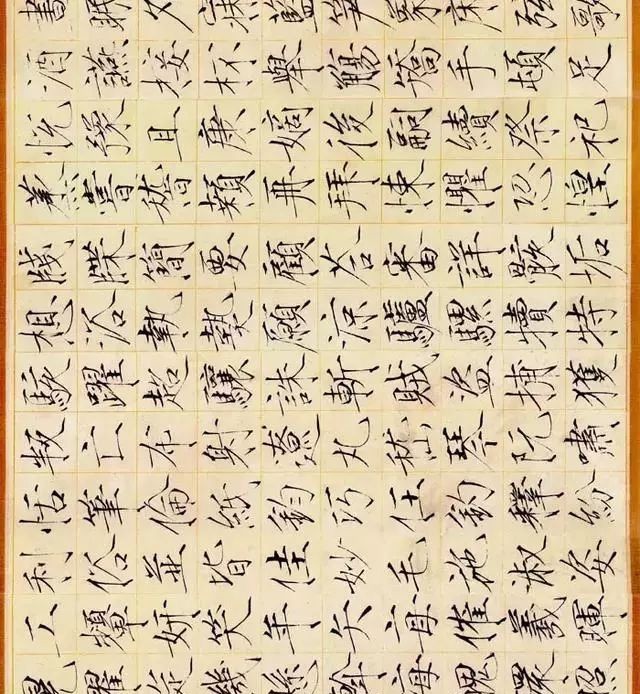 晝眠夕寐藍笋象床弦歌
酒讌接杯舉觴矯手頓足
悅豫且康嫡後嗣續祭祀
蒸嘗稽顙再拜悚懼恐惶
牋牒簡要顧答審詳骸垢
想浴執熱願涼驢騾犢特
駭躍超驤誅斬賊盜捕獲
叛亡布射遼丸嵇琴阮嘯
恬筆倫紙鈞巧任釣釋紛
利俗並皆佳妙毛施淑姿
工嚬妍笑年矢每催羲暉
曜旋璣懸斡晦魄環照